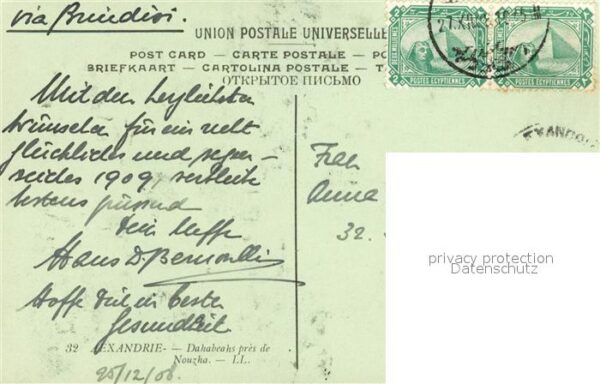 via Brindisi.
UNION POSTALE UNIVERSELLE
POST CARD – CARTE POSTALE – PO
BRIEFKAART – CARTOLINA POSTALE – T
ОТКРЫТОЕ ПИСЬМО
POSTES EGYPTIENNES
POSTES EGYPTIENNES
Mit den herzlichsten
Wünschen für ein recht
glückliches und segen-
reiches 1909, verbleibe
bestens grüssend
Dein Neffe
Hans D. Bernoulli
Hoffe Dich in bester
Gesundheit
Frau
Anna
32.
privacy protection
Datenschutz
32 ALEXANDRIE. – Dahabeahs près de
Nouzha. – LL.
25/12/08